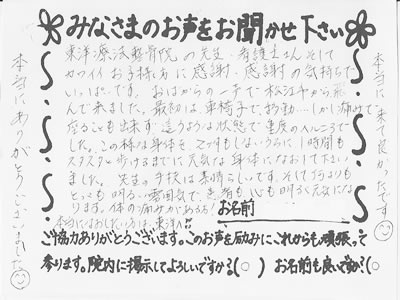 みなさまのお声をお聞かせ下さい
東洋療法整骨院の先生・看護士さん そして
カワイイお手持ち方に感謝・感謝の気持ちで
いっぱいです。おばからの一声で松江市から飛
んで来ました。最初は車椅子で移動…しかし痛みで
座ることも出来ず 這うような状態で重度のヘルニアで
した。この様な身体を2ヶ月もしないうちに1時間も
スタスタと歩けるまでに元気な身体になおして下さい
ました。先生の手技は素晴らしいです。そして何よりも
とっても明るい雰囲気で、患者も心も明るく元気にな
ります。体の痛みがあるなら
本当になおしたいなら東洋へ!!
お名前
ご協力ありがとうございます。このお声を励みにこれからも頑張って
参ります。院内に掲示してよろしいですか?(○) お名前も良いですか?(○)
本当に来て良かったです
本当にありがとうございました